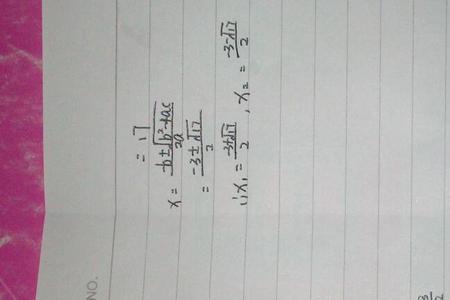 = 17
x = \frac{-b±\sqrt{b²-4ac}}{2a}
= \frac{-3±\sqrt{17}}{2}
∴x₁ = \frac{-3+\sqrt{17}}{2}, x₂ = \frac{-3-\sqrt{17}}{2}
NO.